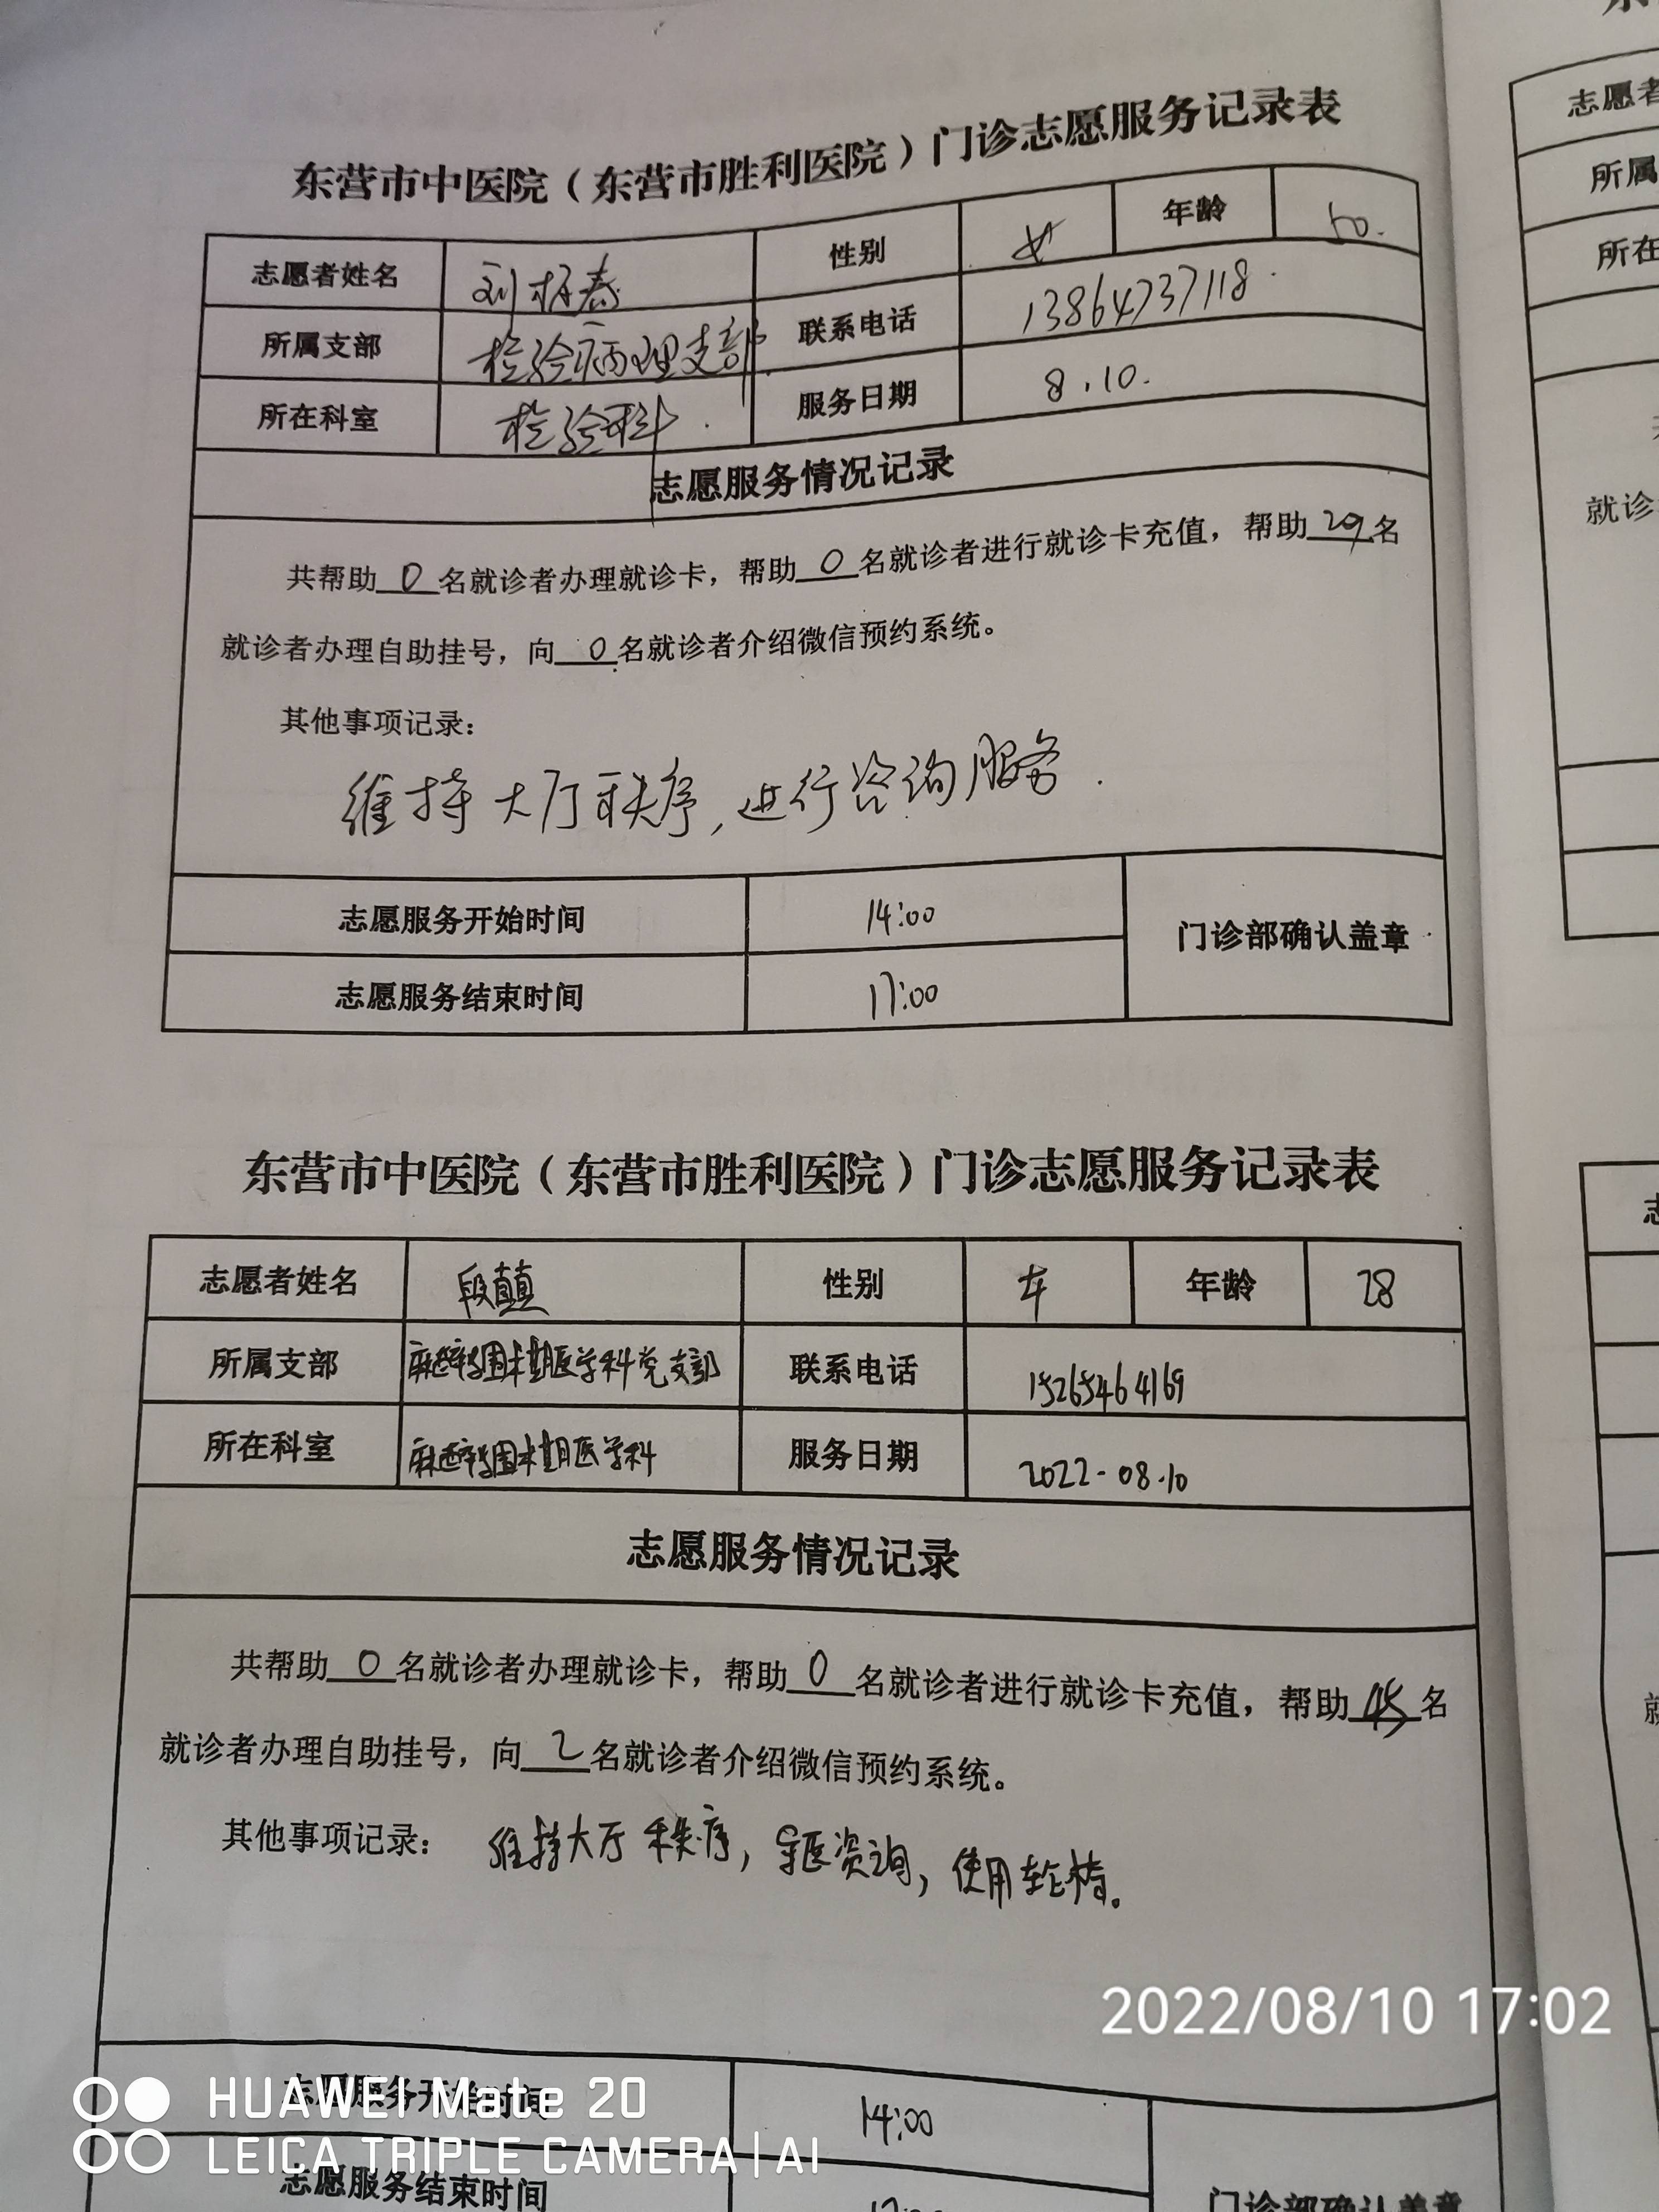 东营市中医院（东营市胜利医院）门诊志愿服务记录表
志愿者姓名 刘 春 性别 女 年龄 50.
所属支部 检验病理支部 联系电话 13864737118.
所在科室 检验科. 服务日期 8.10.
志愿服务情况记录
共帮助 0 名就诊者办理就诊卡，帮助 0 名就诊者进行就诊卡充值，帮助 29 名
就诊者办理自助挂号，向 0 名就诊者介绍微信预约系统。
其他事项记录：
维持大厅秩序，进行咨询服务.
志愿服务开始时间 14:00 门诊部确认盖章
志愿服务结束时间 17:00
东营市中医院（东营市胜利医院）门诊志愿服务记录表
志愿者姓名 段 性别 年龄 28
所属支部 麻醉与围术期医学科党支部 联系电话 15265464169
所在科室 麻醉与围术期医学科 服务日期 2022-08.10
志愿服务情况记录
共帮助 0 名就诊者办理就诊卡，帮助 0 名就诊者进行就诊卡充值，帮助 名
就诊者办理自助挂号，向 2 名就诊者介绍微信预约系统。
其他事项记录： 维持大厅秩序，导医资询，使用轮椅。
2022/08/10 17:02
志愿服务开始时间 14:00
志愿服务结束时间 门诊部确认盖章
HUAWEI Mate 20
LEICA TRIPLE CAMERA | AI
志愿者
所属
所在
就诊